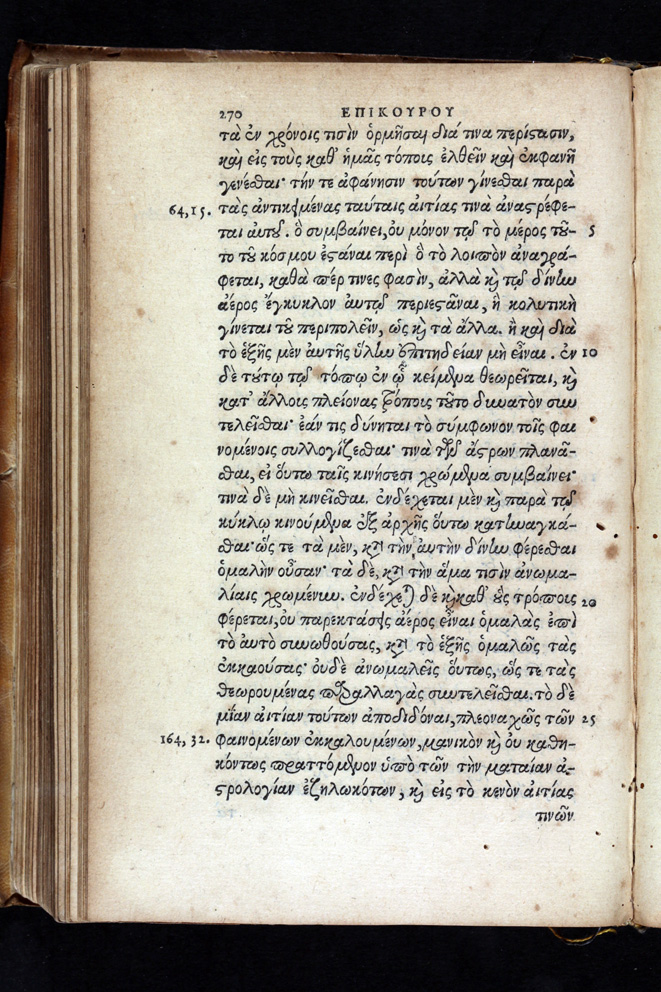 270 ΕΠΙΚΟΥΡΟΥ
τὰ ἐν χρόνοις τισὶν ὁρμῆσαι διά τινα περίστασιν,
καὶ εἰς τοὺς καθ' ἡμᾶς τόποις ἐλθεῖν καὶ ἐκφανῆ
γενέσθαι· τήν τε ἀφάνησιν τούτων γίνεσθαι παρὰ
64,15. τὰς ἀντικειμένας ταύταις αἰτίας τινὰ ἀναστρέφε-
ται αὐτοῦ. ὃ συμβαίνει, οὐ μόνον τῷ τὸ μέρος τοῦ- 5
το τοῦ κόσμου ἑστάναι περὶ ὃ τὸ λοιπὸν ἀναγρά-
φεται, καθά πέρ τινες φασὶν, ἀλλὰ καὶ τῷ δίνην
ἀέρος ἔγκυκλον αὐτῷ περιεστᾶναι, ἢ κολυτικὴ
γίνεται τοῦ περιπολεῖν, ὡς καὶ τὰ ἄλλα. ἢ καὶ διὰ
τὸ ἑξῆς μὲν αὐτῆς ὕλην ἐπιτηδείαν μὴ εἶναι. ἐν 10
δὲ τούτῳ τῷ τόπῳ ἐν ᾧ κείμενα θεωρεῖται, καὶ
κατ' ἄλλοις πλείονας τρόποις τοῦτο δυνατὸν συν
τελεῖσθαι· ἐάν τις δύνηται τὸ σύμφωνον τοῖς φαι
νομένοις συλλογίζεσθαι· τινὰ τῶν ἄστρων πλανᾶ-
σθαι, εἰ οὕτω ταῖς κινήσεσι χρώμενα συμβαίνει·
τινὰ δὲ μὴ κινεῖσθαι. ἐνδέχεται μὲν καὶ παρὰ τῷ
κύκλῳ κινούμενα ἐξ ἀρχῆς οὕτω κατηναγκά-
σθαι· ὥς τε τὰ μὲν, κατὰ τὴν αὐτὴν δίνην φέρεσθαι
ὁμαλὴν οὖσαν· τὰ δὲ, κατὰ τὴν ἅμα τισὶν ἀνωμα-
λίαις χρωμένην. ἐνδέχεται δὲ καὶ καθ' οὓς τρόποις 20
φέρεται, οὐ παρεκτάσεις ἀέρος εἶναι ὁμαλὰς ἐπὶ
τὸ αὐτὸ συνωθούσας, κατὰ τὸ ἑξῆς ὁμαλῶς τὰς
ἐκκαούσας· οὐδὲ ἀνωμαλεῖς οὕτως, ὥς τε τὰς
θεωρουμένας παραλλαγὰς συντελεῖσθαι. τὸ δὲ
μίαν αἰτίαν τούτων ἀποδιδόναι, πλεοναχῶς τῶν 25
164,32. φαινομένων ἐκκαλουμένων, μανικὸν καὶ οὐ καθη-
κόντως πραττόμενον ὑπὸ τῶν τὴν ματαίαν ἀ-
στρολογίαν ἐζηλωκότων, καὶ εἰς τὸ κενὸν αἰτίας
τινῶν